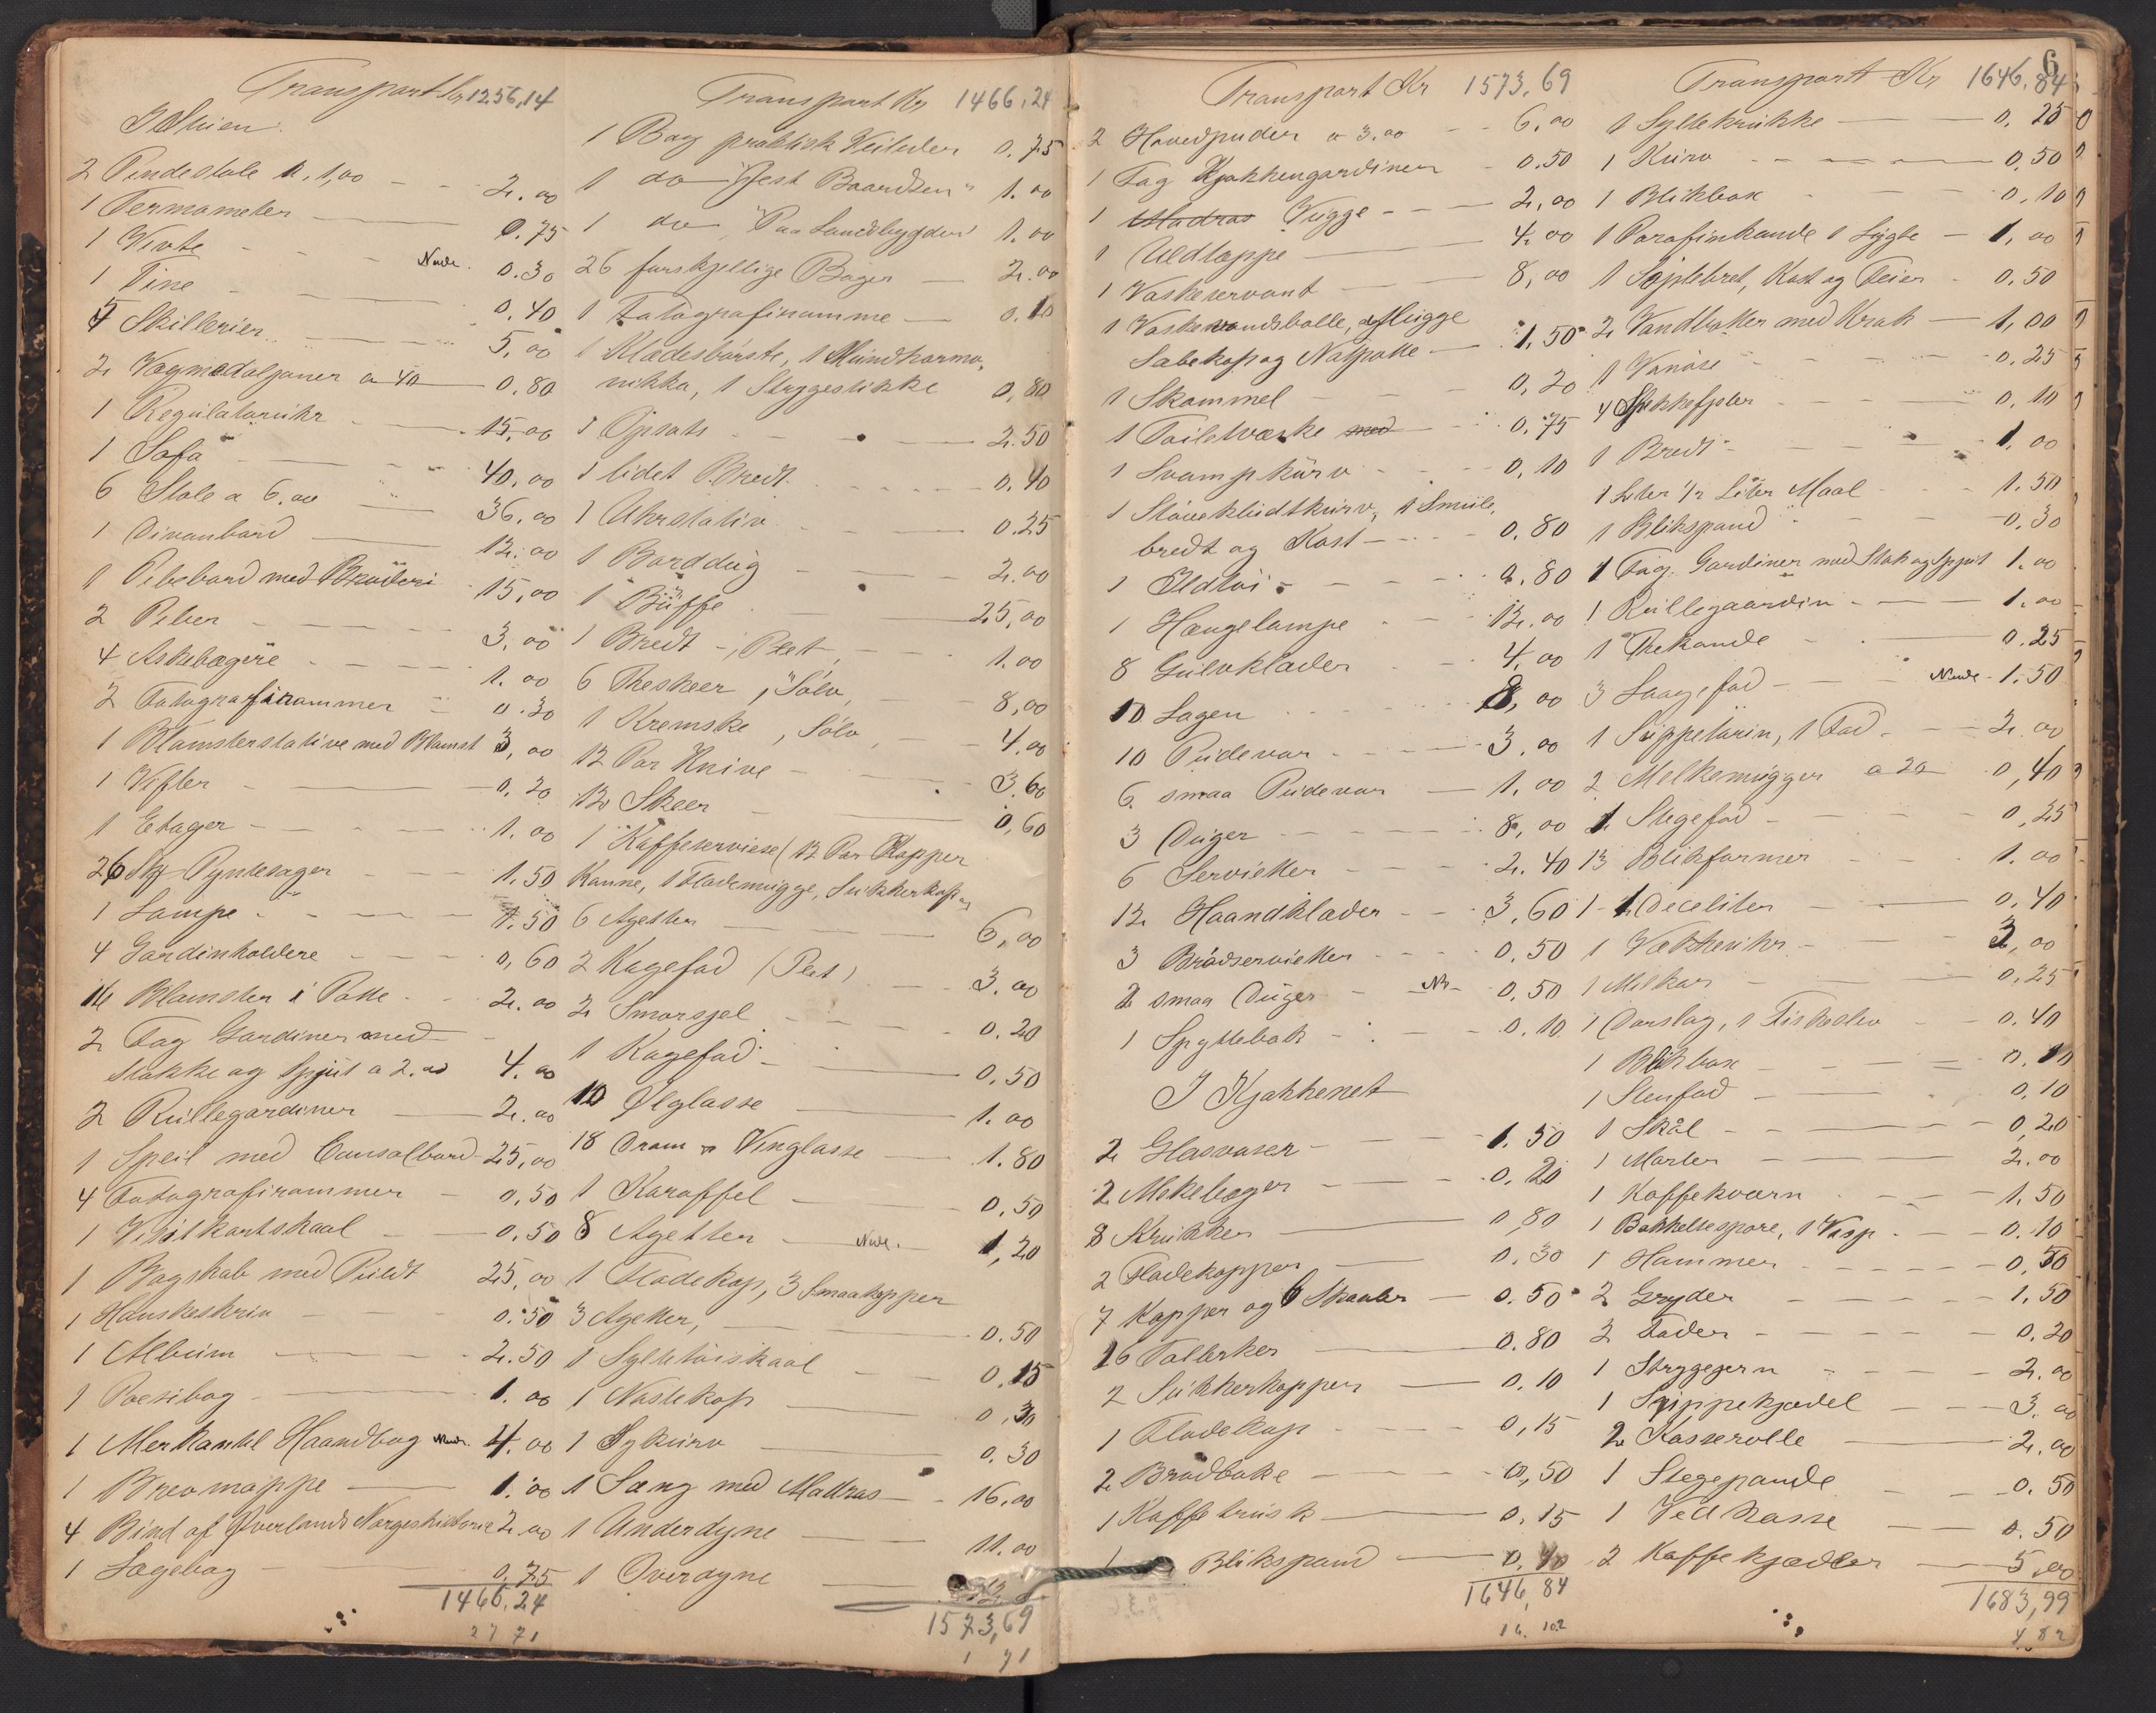 Transport Kr 1256,14
I Stuen.
2 Pindestole a 1,00 2.00
1 Termometer 0.75
1 Vivte Nude. 0.30
1 Tine 0.40
4 Skillerier 5,00
2 Vægmedaljoner a 40 0.80
1 Regulatoruhr 15,00
1 Sofa 40,00
6 Stole a 6.00 36,00
1 Divanbord 12.00
1 Pibebord med Broderi 15,00
2 Piber 3,00
4 Askebægere 1.00
2 Fotografirammer 0.30
1 Blomsterstative med Blomst 3,00
1 Vifter 0.20
1 Etager 1.00
26 Stk Pyntesager 1.50
1 Lampe 1.50
4 Gardinholdere 0,60
14 Blomster i Potte 2.00
2 Fag Gardiner med
Stokke og Spjut a 2.00 4.00
2 Rullegardiner 2.00
1 Speil med Consolbord 25,00
4 Fotografirammer 0,50
1 Visitkortskaal 0.50
1 Bogskab med Puldt 25,00
1 Hanskeskrin 0.50
1 Album 2.50
1 Poesibog 1.00
1 Merkantil Haandbog Nude. 4.00
1 Brevmappe 1.00
4 Bind af Øverlands Norgeshistorie 2.00
1 Lægebog 0,75
1466,24
27 71
Transport Kr 1466,24
1 Bog praktisk Veileder 0.75
1 do "Jest Baardsen" 1.00
1 do "Paa Landsbygden" 1.00
26 forskjellige Bøger 2.00
1 Fotografiramme 0.10
1 Klædesbørste, 1 Mundharmo-
nikka, 1 Stryggestikke 0,80
1 Opsats 2.50
1 lidet Bredt 0.40
1 Uhrstativ 0.25
1 Borddug 2.00
1 Buffe 25,00
1 Bredt -, Plet, 1.00
6 Theskeer, Sølv, 8,00
1 Kremske, Sølv, 4.00
12 Par Knive 3.60
12 Skeer 0,60
1 Kaffeserviese (12 Par Kopper
Kanne, 1 Flødemugge, Sukkerkop og
6 Agetter 6,00
2 Kagefad (Plet) 3.00
2 Smørsgel 0.20
1 Kagefad 0.50
10 Ølglasse 1.00
18 Dram & Vinglasse 1.80
1 Karaffel 0.50
8 Agetter Nude. 1,20
1 Flødekop, 3 Smaakopper
3 Agetter, 0.50
1 Syltetøiskaal 0.15
1 Nøstekop 0,30
1 Sykurv 0.30
1 Sæng med Madras 16,00
1 Underdyne 11.00
1 Overdyne
1573,69
1 71
6
Transport Kr 1573,69
2 Hovedpuder a 3.00 6,00
1 Fag Kjøkkengardiner 0.50
1 Madras Vugge 2,00
1 Uldtæppe 4.00
1 Vaskeservant 8,00
1 Vaskevandsbolle, Mugge
Sæbekop og Natpotte 1.50
1 Skammel 0,20
1 Toiletvæske med 0,75
1 Svampkurv 0,10
1 Støvekludtkurv, 1 Smule,
bredt og Kost 0,80
1 Ildtøi 0.80
1 Hængelampe 12.00
8 Gulvklæder 4,00
10 Lagen 8,00
10 Pudevar 3.00
6. smaa Pudevar 1.00
3 Duger 8,00
6 Servietter 2.40
12 Haandklæder 3,60
3 Brødservietter 0.50
2 smaa Duger N. 0,50
1 Spyttebak 0.10
I Kjøkkenet
2 Glasvaser 1.50
2 Askebæger 0.20
8 Krukker 0,80
2 Flødekopper 0.30
7 Kopper og 6 Skaaler 0.50
16 Tallerker 0.80
2 Sukkerkopper 0.10
1 Flødekop 0,15
2 Brødboke 0,50
1 Kaffebrusk 0.15
1 Blikspand 0,40
1646,84
16. 102
Transport Kr 1646,84
1 Syltekrukke 0,25
1 Kurv 0,50
1 Blikbox 0,10
1 Parafinkande 1 Lygte 1,00
1 Søplebret, Kost og Feier 0.50
2 Vandbøtter med Krak 1,00
1 Vanøse 0.25
4 Spekkefjøler 0.10
1 Bredt 1.00
1 Liter 1/2 Liter Maal 1.50
1 Blikspand 0.30
1 Fag. Gardiner med Stok og Spjut 1.00
1 Rullegaardin 1.00
1 Thekande 0.25
3 Laagefad Nude 1.50
1 Suppeterin, 1 Fad 2.00
2 Melkemugger a 20 0,40
1 Stegefad 0,25
13 Blikformer 1.00
1 - 1 Deciliter 0.40
1 Vækkeruhr 3,00
1 Melkar 0,25
1 Dørslag, 1 Fiskeslev 0.40
1 Blikbox 0.10
1 Stenfad 0,10
1 Skål 0,20
1 Morter 2.00
1 Kaffekværn 1.50
1 Bakkelsespore, 1 Visp 0.10
1 Hammer 0,50
2 Gryder 1.50
2 Fader 0.20
1 Strygejern 2.00
1 Suppekjedel 3.00
2 Kasserolle 2.00
1 Stegepande 0.50
1 Vedkasse 0.50
2 Kaffekjædler 5,00
1683,99
4.82